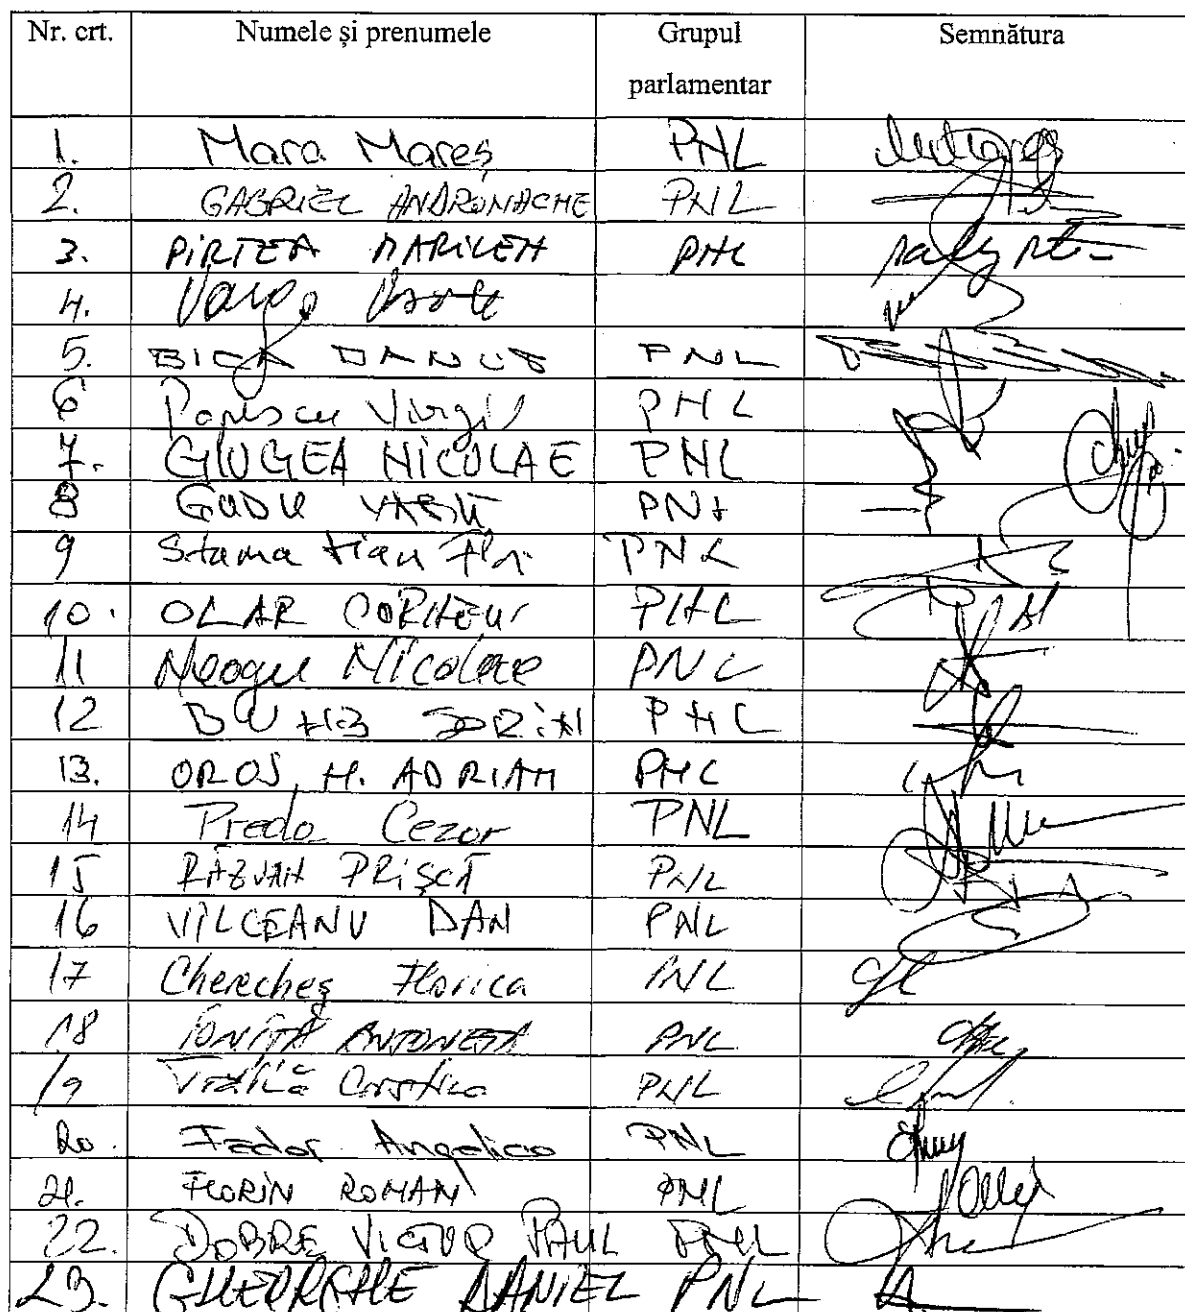 Nr. crt. Numele și prenumele Grupul parlamentar Semnătura
1. Mara Mareș PNL
2. GABRIEL ANDRONACHE PNL
3. PIRTEA MARILEN PNL
4. Varga
5. BICA DANUT PNL
6 Popescu Virgil PNL
7. GIUGEA NICOLAE PNL
8 GUDU VASILE PNL
9 Stamatian Flor. PNL
10. OLAR CORNELIU PNL
11 Neagu Nicolae PNL
12 BUMB SORIN PNL
13. OROS N. ADRIAN PNL
14 Preda Cezar PNL
15 RĂZVAN PRIȘCĂ PNL
16 VILCEANU DAN PNL
17 Cherecheș Florica PNL
18 IONIȚĂ ANTONETA PNL
19 PNL
20. Fador Angelica PNL
21. FLORIN ROMAN PNL
22. DOBRE VICTOR PAUL PNL
23. GHEORGHE DANIEL PNL